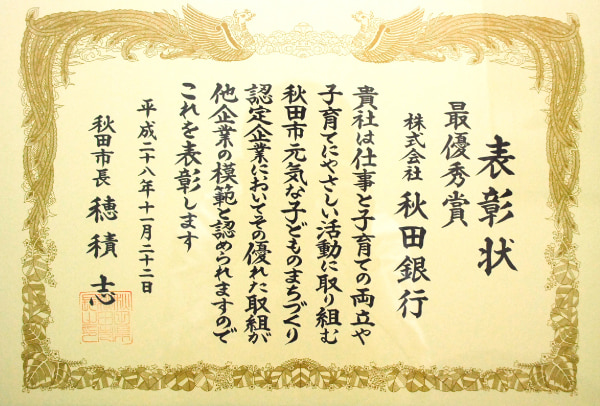 表彰状
最優秀賞
株式会社 秋田銀行
貴社は仕事と子育ての両立や
子育てにやさしい活動に取り組む
秋田市元気な子どものまちづくり
認定企業においてその優れた取組が
他企業の模範と認められますので
これを表彰します
平成二十八年十一月二十二日
秋田市長 穂積 志